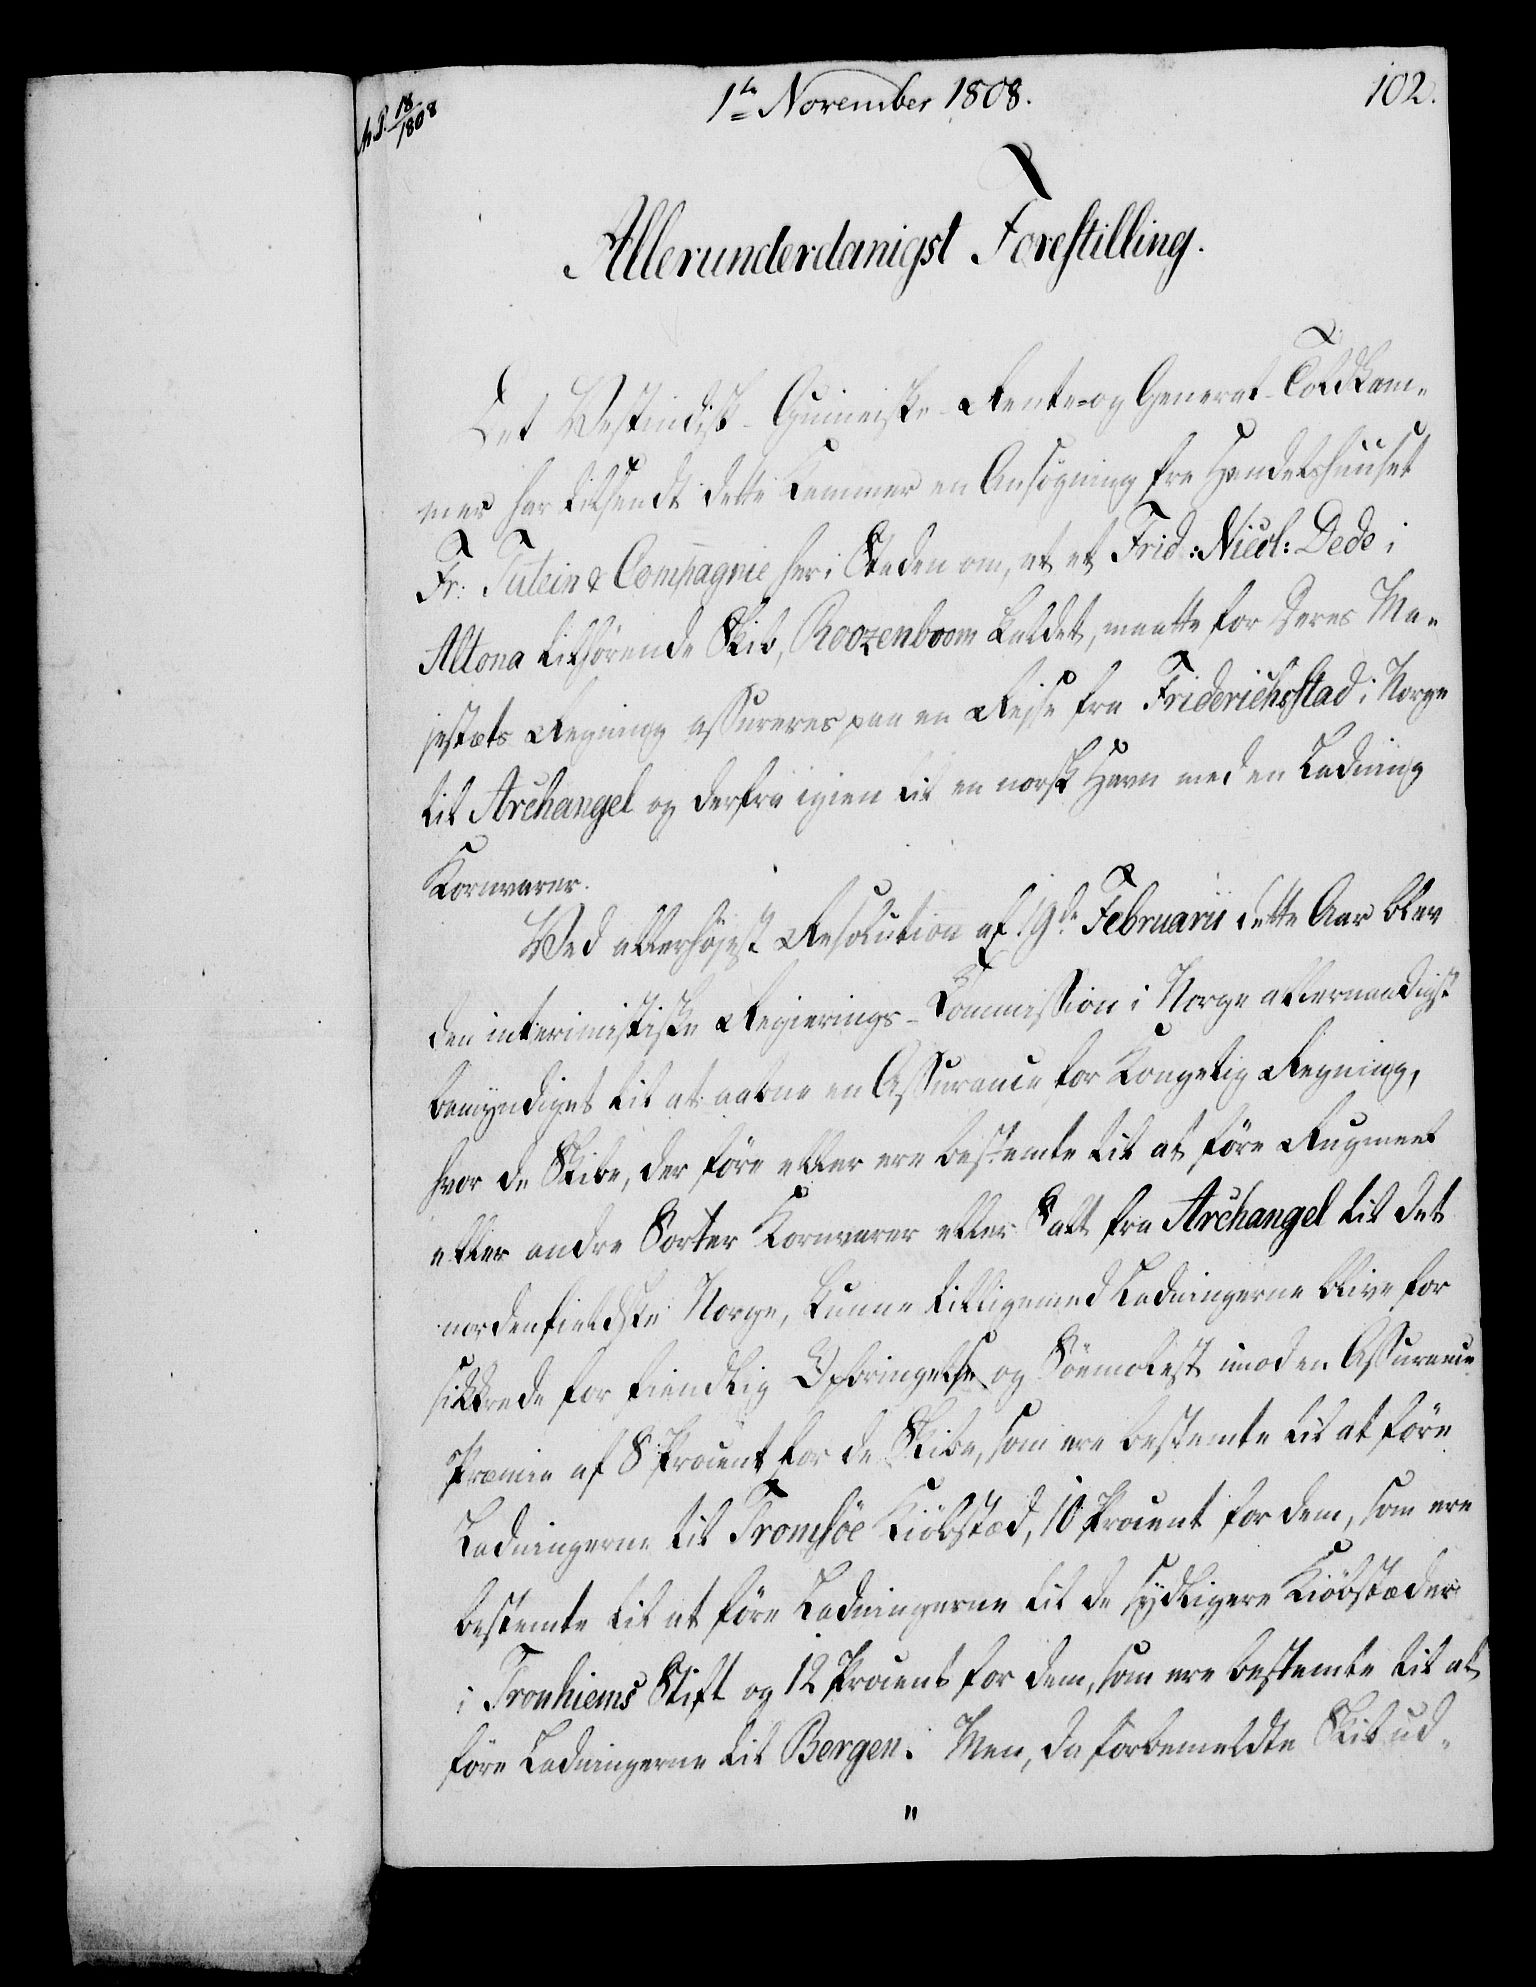 1te November 1808.
102.
18/1808
Allerunderdanigst Forestilling.
Det Vestindisk-Guineiske Rente- og General-Toldkam-
mer har tilsendt dette Kammer en Ansøgning fra Handelshuuset
Fr: Tutein & Compagnie her i Staden om, at et Frid: Nicol: Dede i
Altona tilhørende Skib, Roozenboom kaldet, maatte for Deres Ma-
jestæts Regning assureres paa en Rejse fra Friderichsstad i Norge
til Archangel og derfra igien til en norsk Havn med en Ladning
Kornvarer.
Ved allerhøjest Resolution af 19de Februarii dette Aar blev
den interimistiske Regierings-Commission i Norge allernaadigst
bemyndiget til at aabne en Assurance for Kongelig Regning,
hvor de Skibe, der føre eller ere bestemte til at føre Rugmeel
eller andre Sorter Kornvarer eller Salt fra Archangel til det
nordenfieldske Norge, kunne tilligemed Ladningerne blive for
sikkrede for fiendlig Opbringelse og Søemolest imod en Assurance
Præmie af 8 Procent for de Skibe, som ere bestemte til at føre
Ladningerne til Tromsöe Kiöbstæd, 10 Procent for dem, som ere
bestemte til at føre Ladningerne til de sydligere Kiöbstæder
i Tronhiems Stift og 12 Procent for dem, som ere bestemte til at
føre Ladningerne til Bergen. Men, da forbemeldte Skib ud-
"